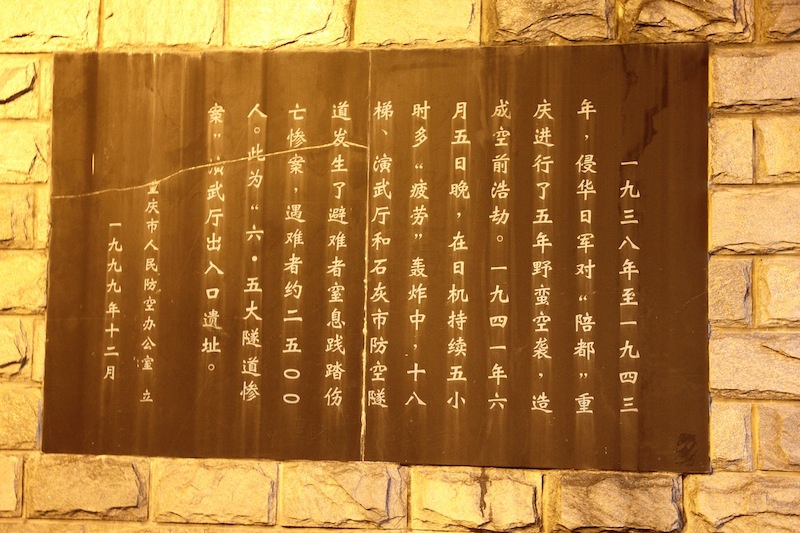 一九三八年至一九四三
年，侵华日军对“陪都”重
庆进行了五年野蛮空袭，造
成空前浩劫。一九四一年六
月五日晚，在日机持续五小
时多“疲劳”轰炸中，十八
梯、演武厅和石灰市防空隧
道发生了避难者窒息践踏伤
亡惨案，遇难者约二五〇〇
人。此为“六·五大隧道惨
案”演武厅出入口遗址。
重庆市人民防空办公室 立
一九九九年十二月